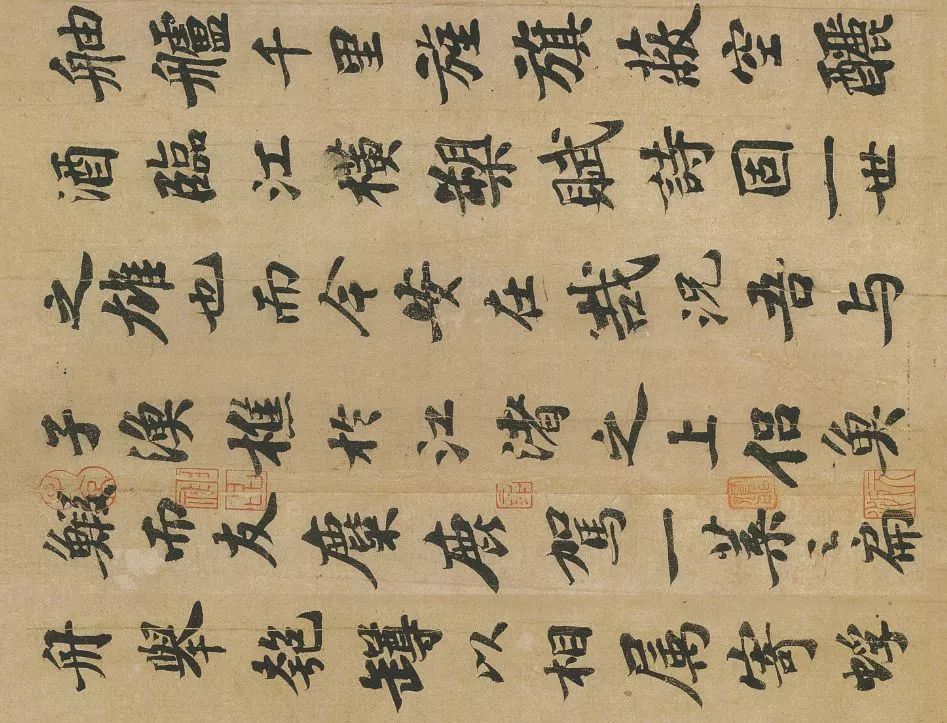 舳艫千里旌旗蔽空釃
酒臨江橫槊賦詩固一世
之雄也而今安在哉況吾与
子漁樵於江渚之上侶魚
鰕而友麋鹿駕一葉之扁
舟舉匏罇以相屬寄蜉